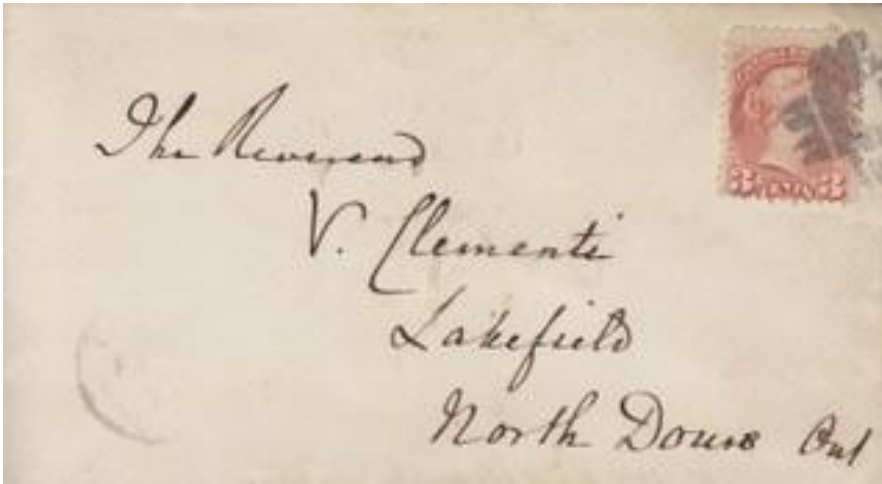 3 CENTS 3
The Reverend
V. Clementi
Lakefield
North Douro Ont